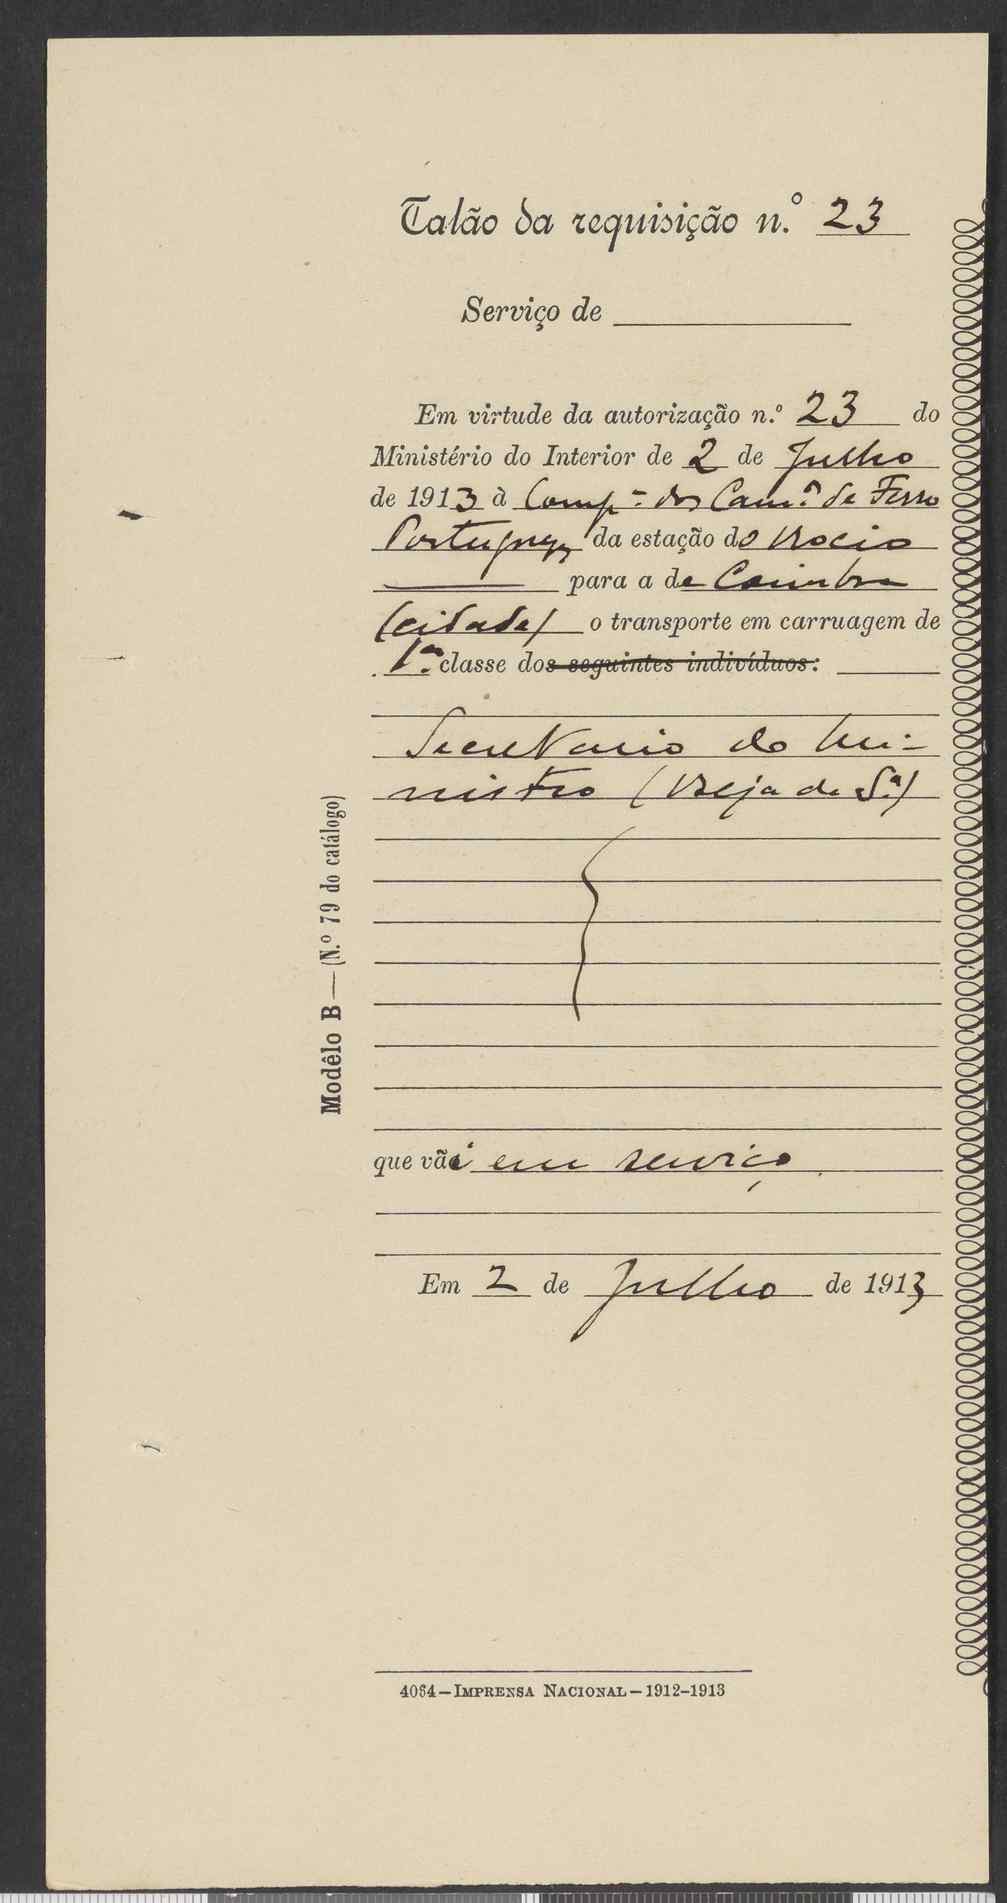 Talão da requisição n.º 23
Serviço de
Em virtude da autorização n.º 23 do
Ministério do Interior de 2 de Julho
de 1913 à Comp.ª dos Cam.ºs de Ferro
Portuguezes da estação do Rocio
para a de Coimbra
(cidade) o transporte em carruagem de
1.ª classe dos seguintes indivíduos:
Secretario do Mi-
nistro (Veja de S.ª)
que vai em serviço
Em 2 de Julho de 1913
Modêlo B — (N.º 79 do catálogo)
4064 — IMPRENSA NACIONAL — 1912-1913